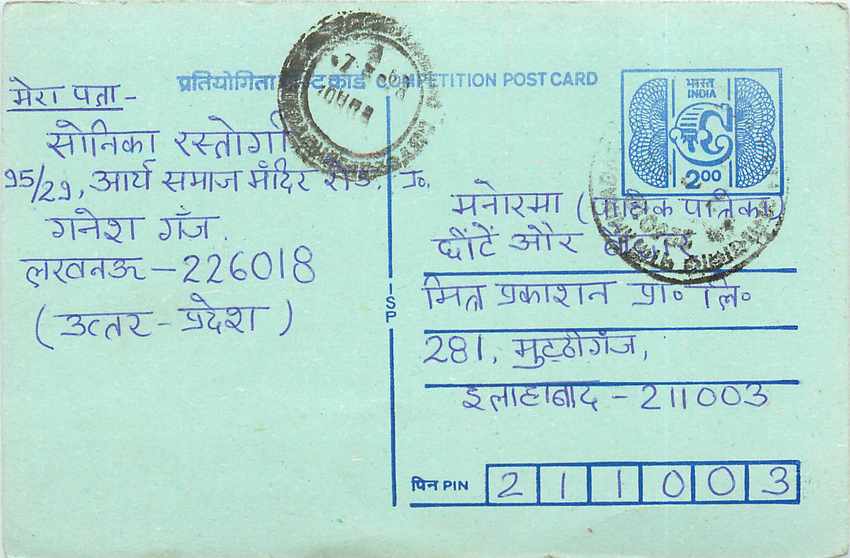 प्रतियोगिता पोस्ट कार्ड COMPETITION POST CARD
भारत
INDIA
2.00
मेरा पता -
सोनिका रस्तोगी
95/29, आर्य समाज मंदिर रोड.
गनेश गँज.
लखनऊ - 226018
(उत्तर - प्रदेश)
ISP
मनोरमा (पाक्षिक पत्रिका)
छींटें और
मित्र प्रकाशन प्रा॰ लि॰
281, मुट्ठीगँज,
इलाहाबाद - 211003
पिन PIN 211003